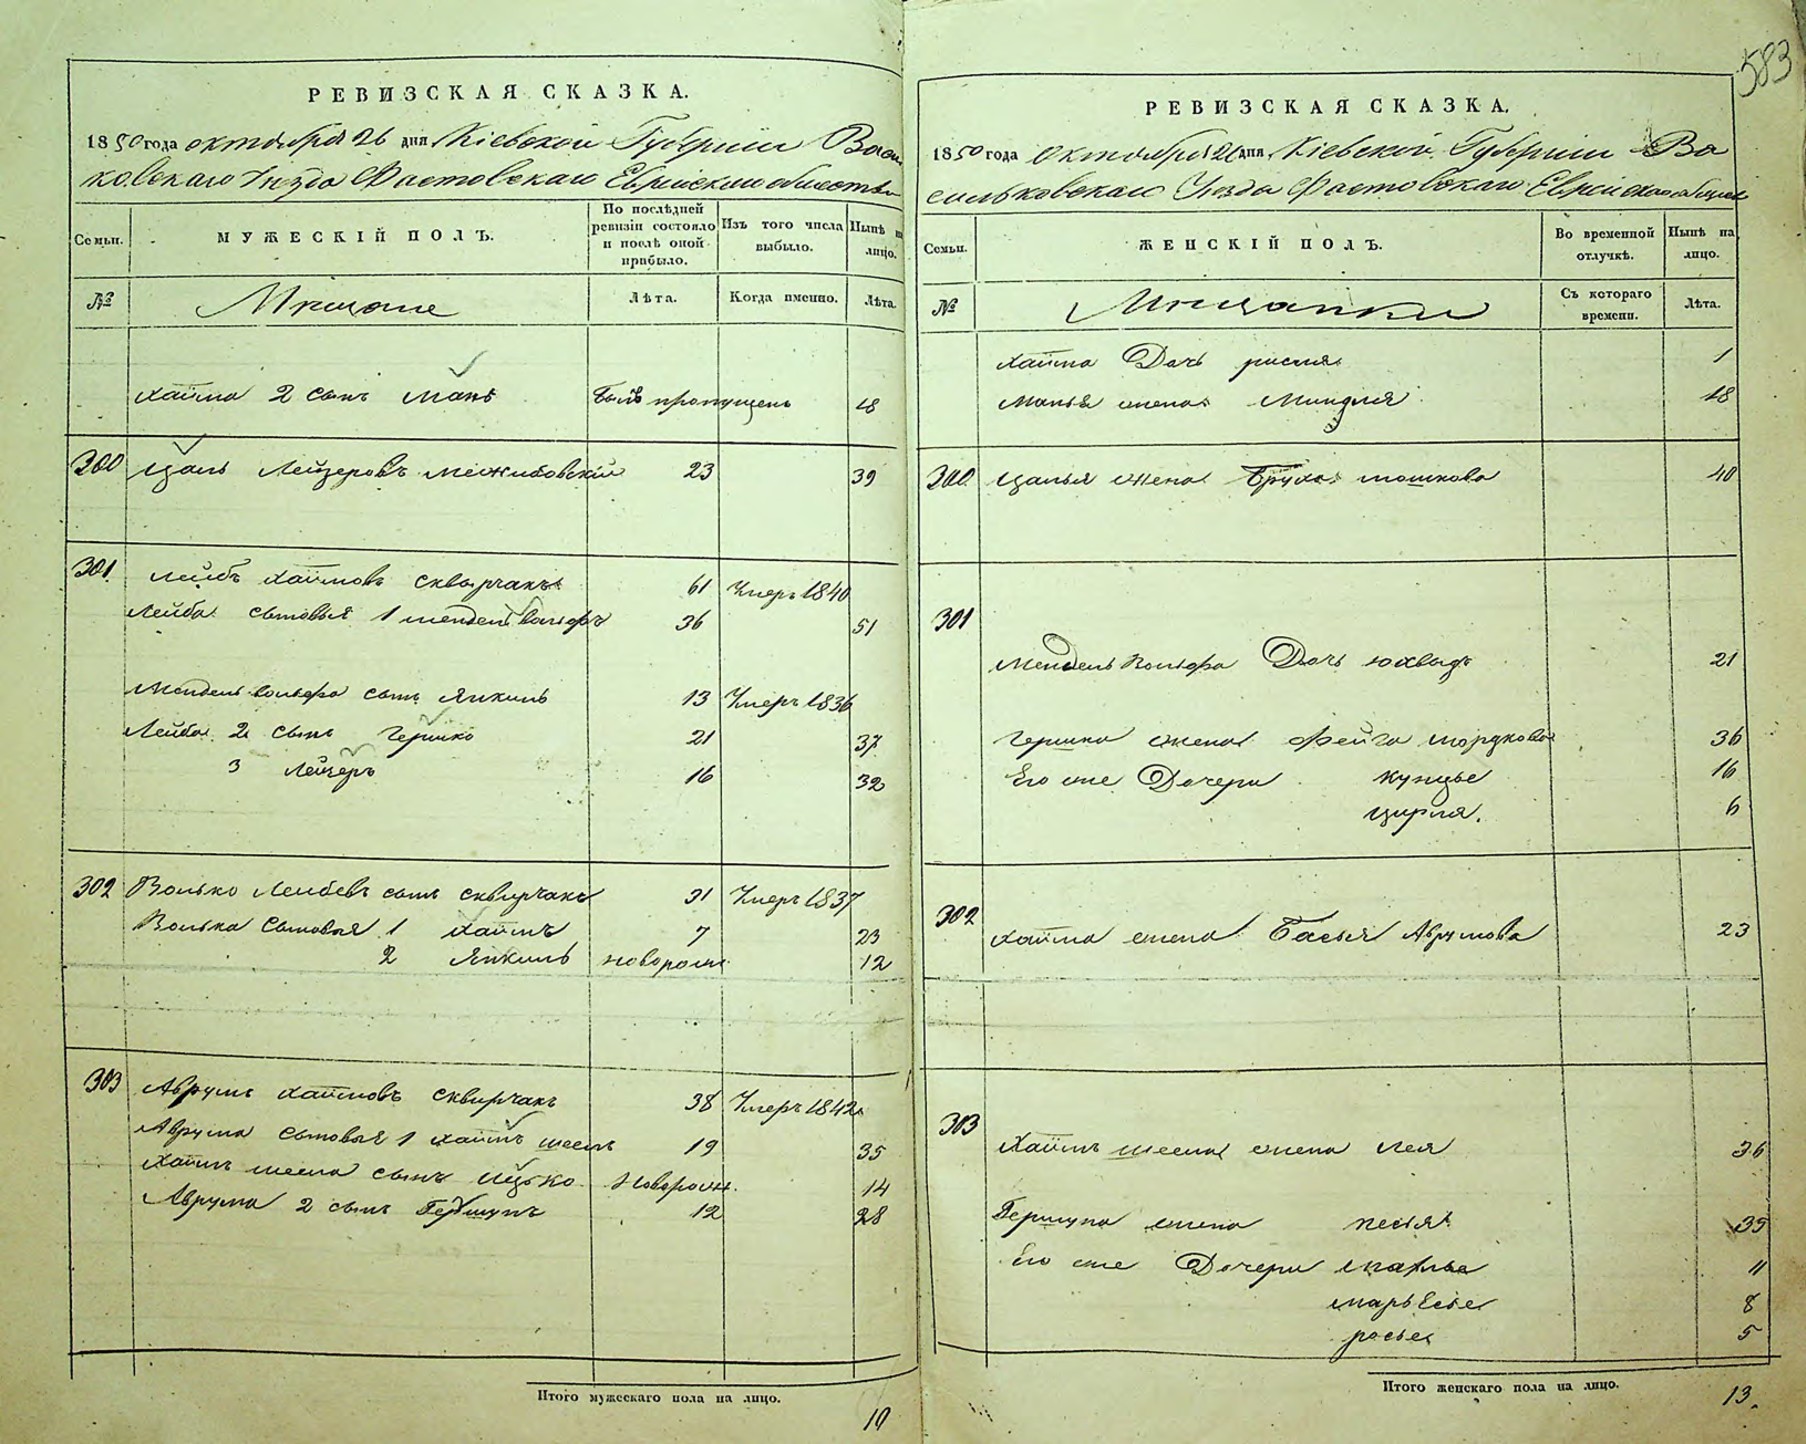 РЕВИЗСКАЯ СКАЗКА.
1850 года октября 26 дня Кіевской Губерніи Василь
ковскаго Уѣзда Фастовскаго Еврейскаго общества
Семьи.
МУЖЕСКІЙ ПОЛЪ.
По послѣдней ревизіи состояло и послѣ оной прибыло.
Изъ того числа выбыло.
Нынѣ на лицо.
№
Мѣщане
Лѣта.
Когда именно.
Лѣта.
Хаима 2 сынъ Мань былъ пропущенъ 18
300 Цаль Лейзеровъ Межибовскій 23 39
301 Лейбъ Хаимовъ Сквирчакъ 61 Умеръ 1840
Лейба сыновья 1 Мендель Вольфъ 36 51
Мендель Вольфа сынъ Янкель 13 Умеръ 1836
Лейба 2 сынъ Гершко 21 37
3 Лейзеръ 16 32
302 Волько Лейбовъ сынъ Сквирчакъ 31 Умеръ 1837
Волька сыновья 1 Хаимъ 7 23
2 Янкель новорожд 12
303 Аврумъ Хаимовъ Сквирчакъ 38 Умеръ 1842
Аврума сыновья 1 Хаимъ 19 35
Хаимъ сынъ Ицько Новорожд. 14
Аврума 2 сынъ Гершунъ 12 28
Итого мужескаго пола на лицо.
10
583
РЕВИЗСКАЯ СКАЗКА.
1850 года Октября 26 дня Кіевской Губерніи Ва
сильковскаго Уѣзда Фастовскаго Еврейскаго общест
Семьи.
ЖЕНСКІЙ ПОЛЪ.
Во временной отлучкѣ.
Нынѣ на лицо.
№
Мѣщанки
Съ котораго времени.
Лѣта.
Хаима Дочь 1
Манья жена Миндля 18
300 Цалья жена Бруха Мошкова 40
301
Мендель Вольфа Дочь Юхведъ 21
Гершка жена Фейга Мордкова 36
Его же Дочери Кунцье 16
Цирля. 6
302
Хаима жена Басья Аврумова 23
303
Хаимъ жена Лея 36
Гершуна жена Песья 35
Его же Дочери 11
8
росье 5
Итого женскаго пола на лицо.
13.